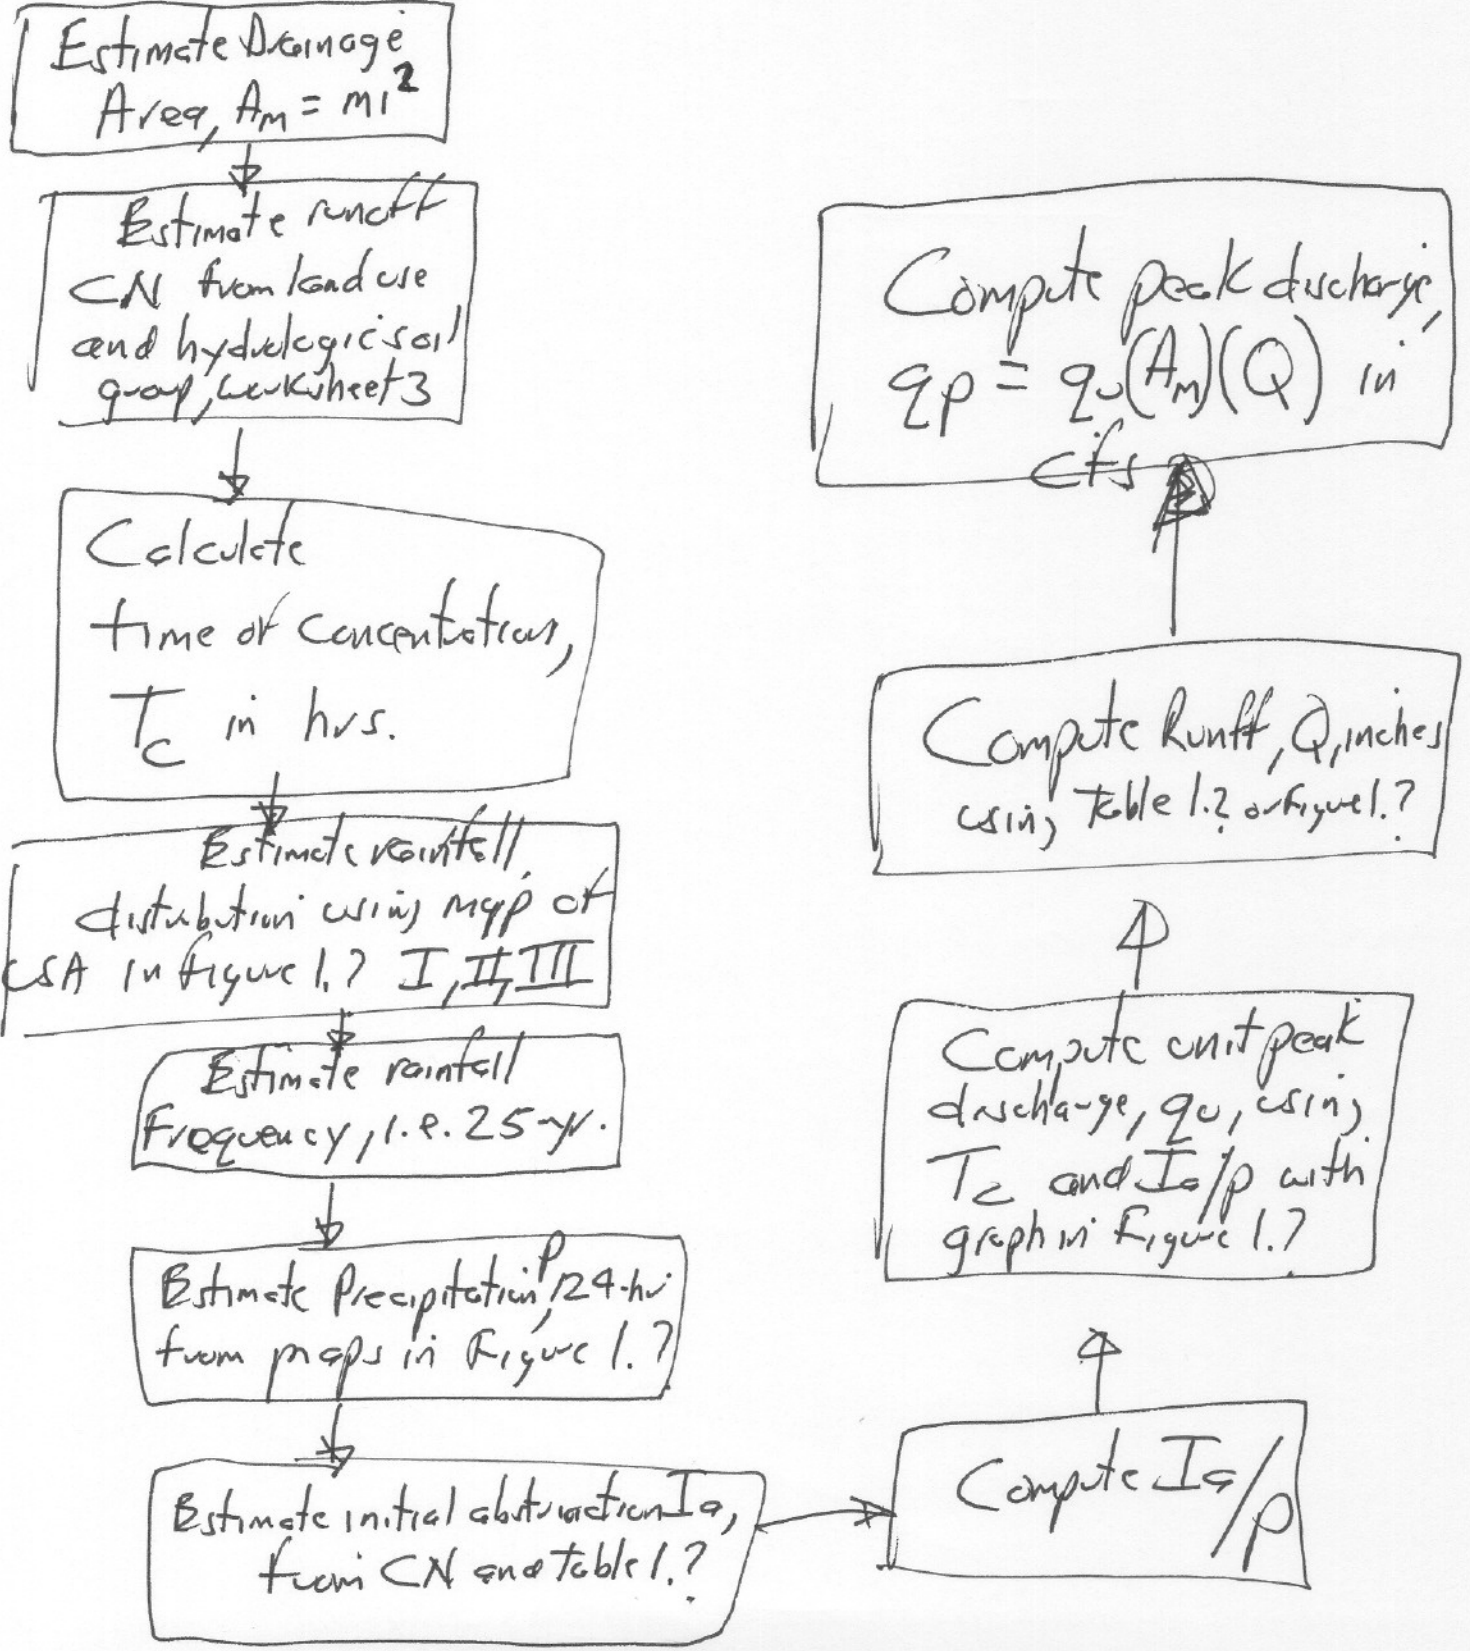 Estimate Drainage
Area, Am = mi²
Estimate runoff
CN from land use
and hydrologic soil
group, worksheet 3
Calculate
time of concentration,
Tc in hrs.
Estimate rainfall
distribution using map of
USA in Figure 1.? I, II, III
Estimate rainfall
Frequency, i.e. 25-yr.
Estimate Precipitation, P, 24-hr
from maps in Figure 1.?
Estimate initial abstraction Ia,
from CN and Table 1.?
Compute Ia/p
Compute unit peak
discharge, qu, using
Tc and Ia/p with
graph in Figure 1.?
Compute Runff, Q, inches
using Table 1.? or Figure 1.?
Compute peak discharge,
qp = qu(Am)(Q) in
cfs